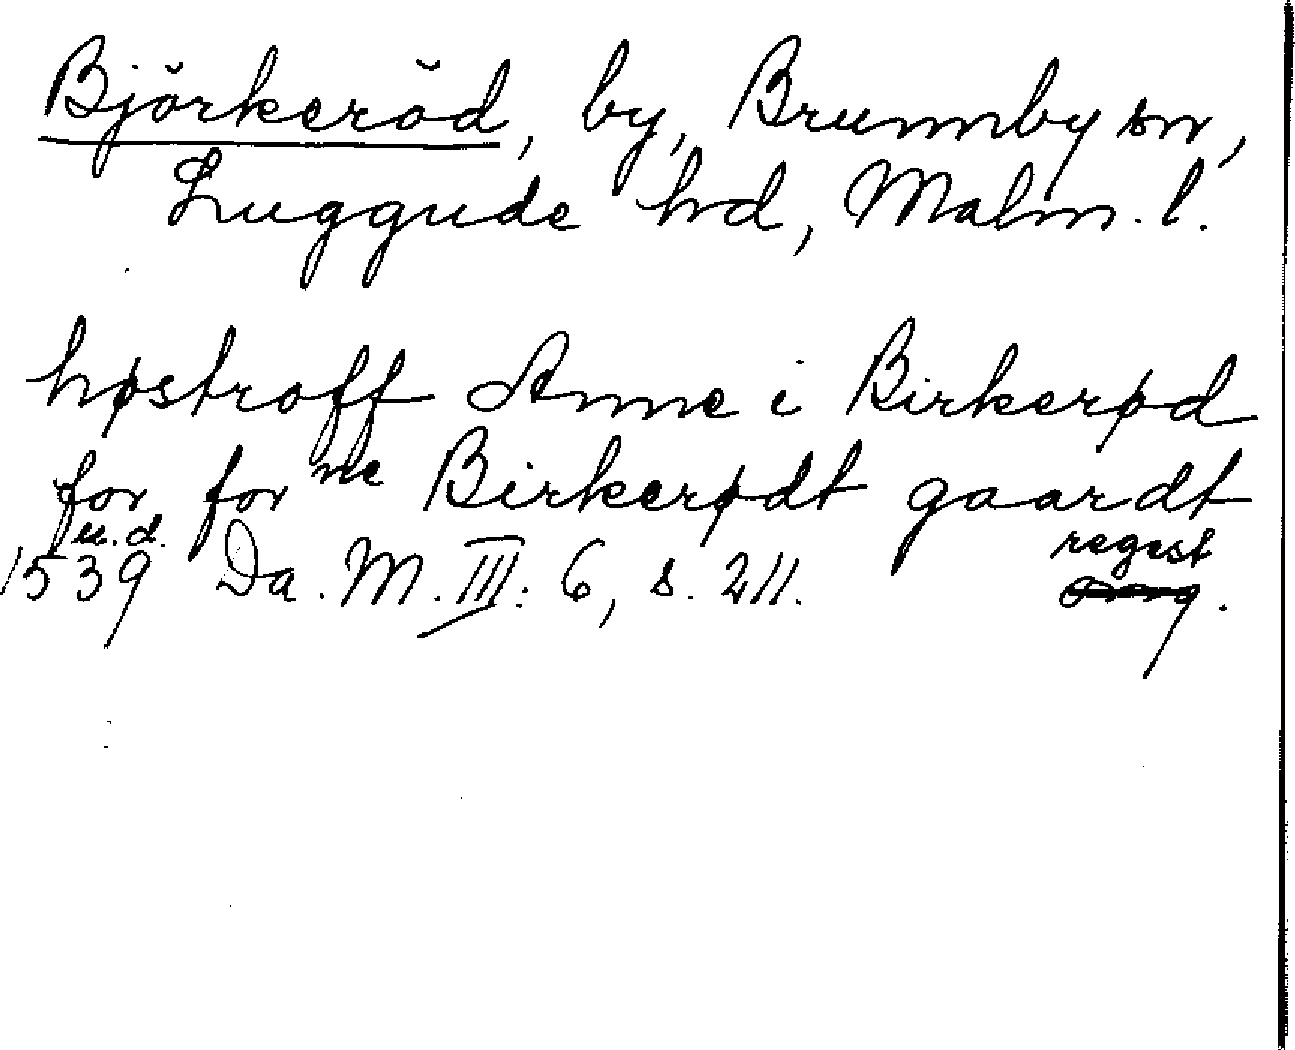 Björkeröd, by, Brunnby sn,
Luggude hd, Malm. l.
høstroff Anne i Birkerød
for for ne Birkerødt gaardt
u. d. regest
1539 Da. M. III: 6, s. 211.